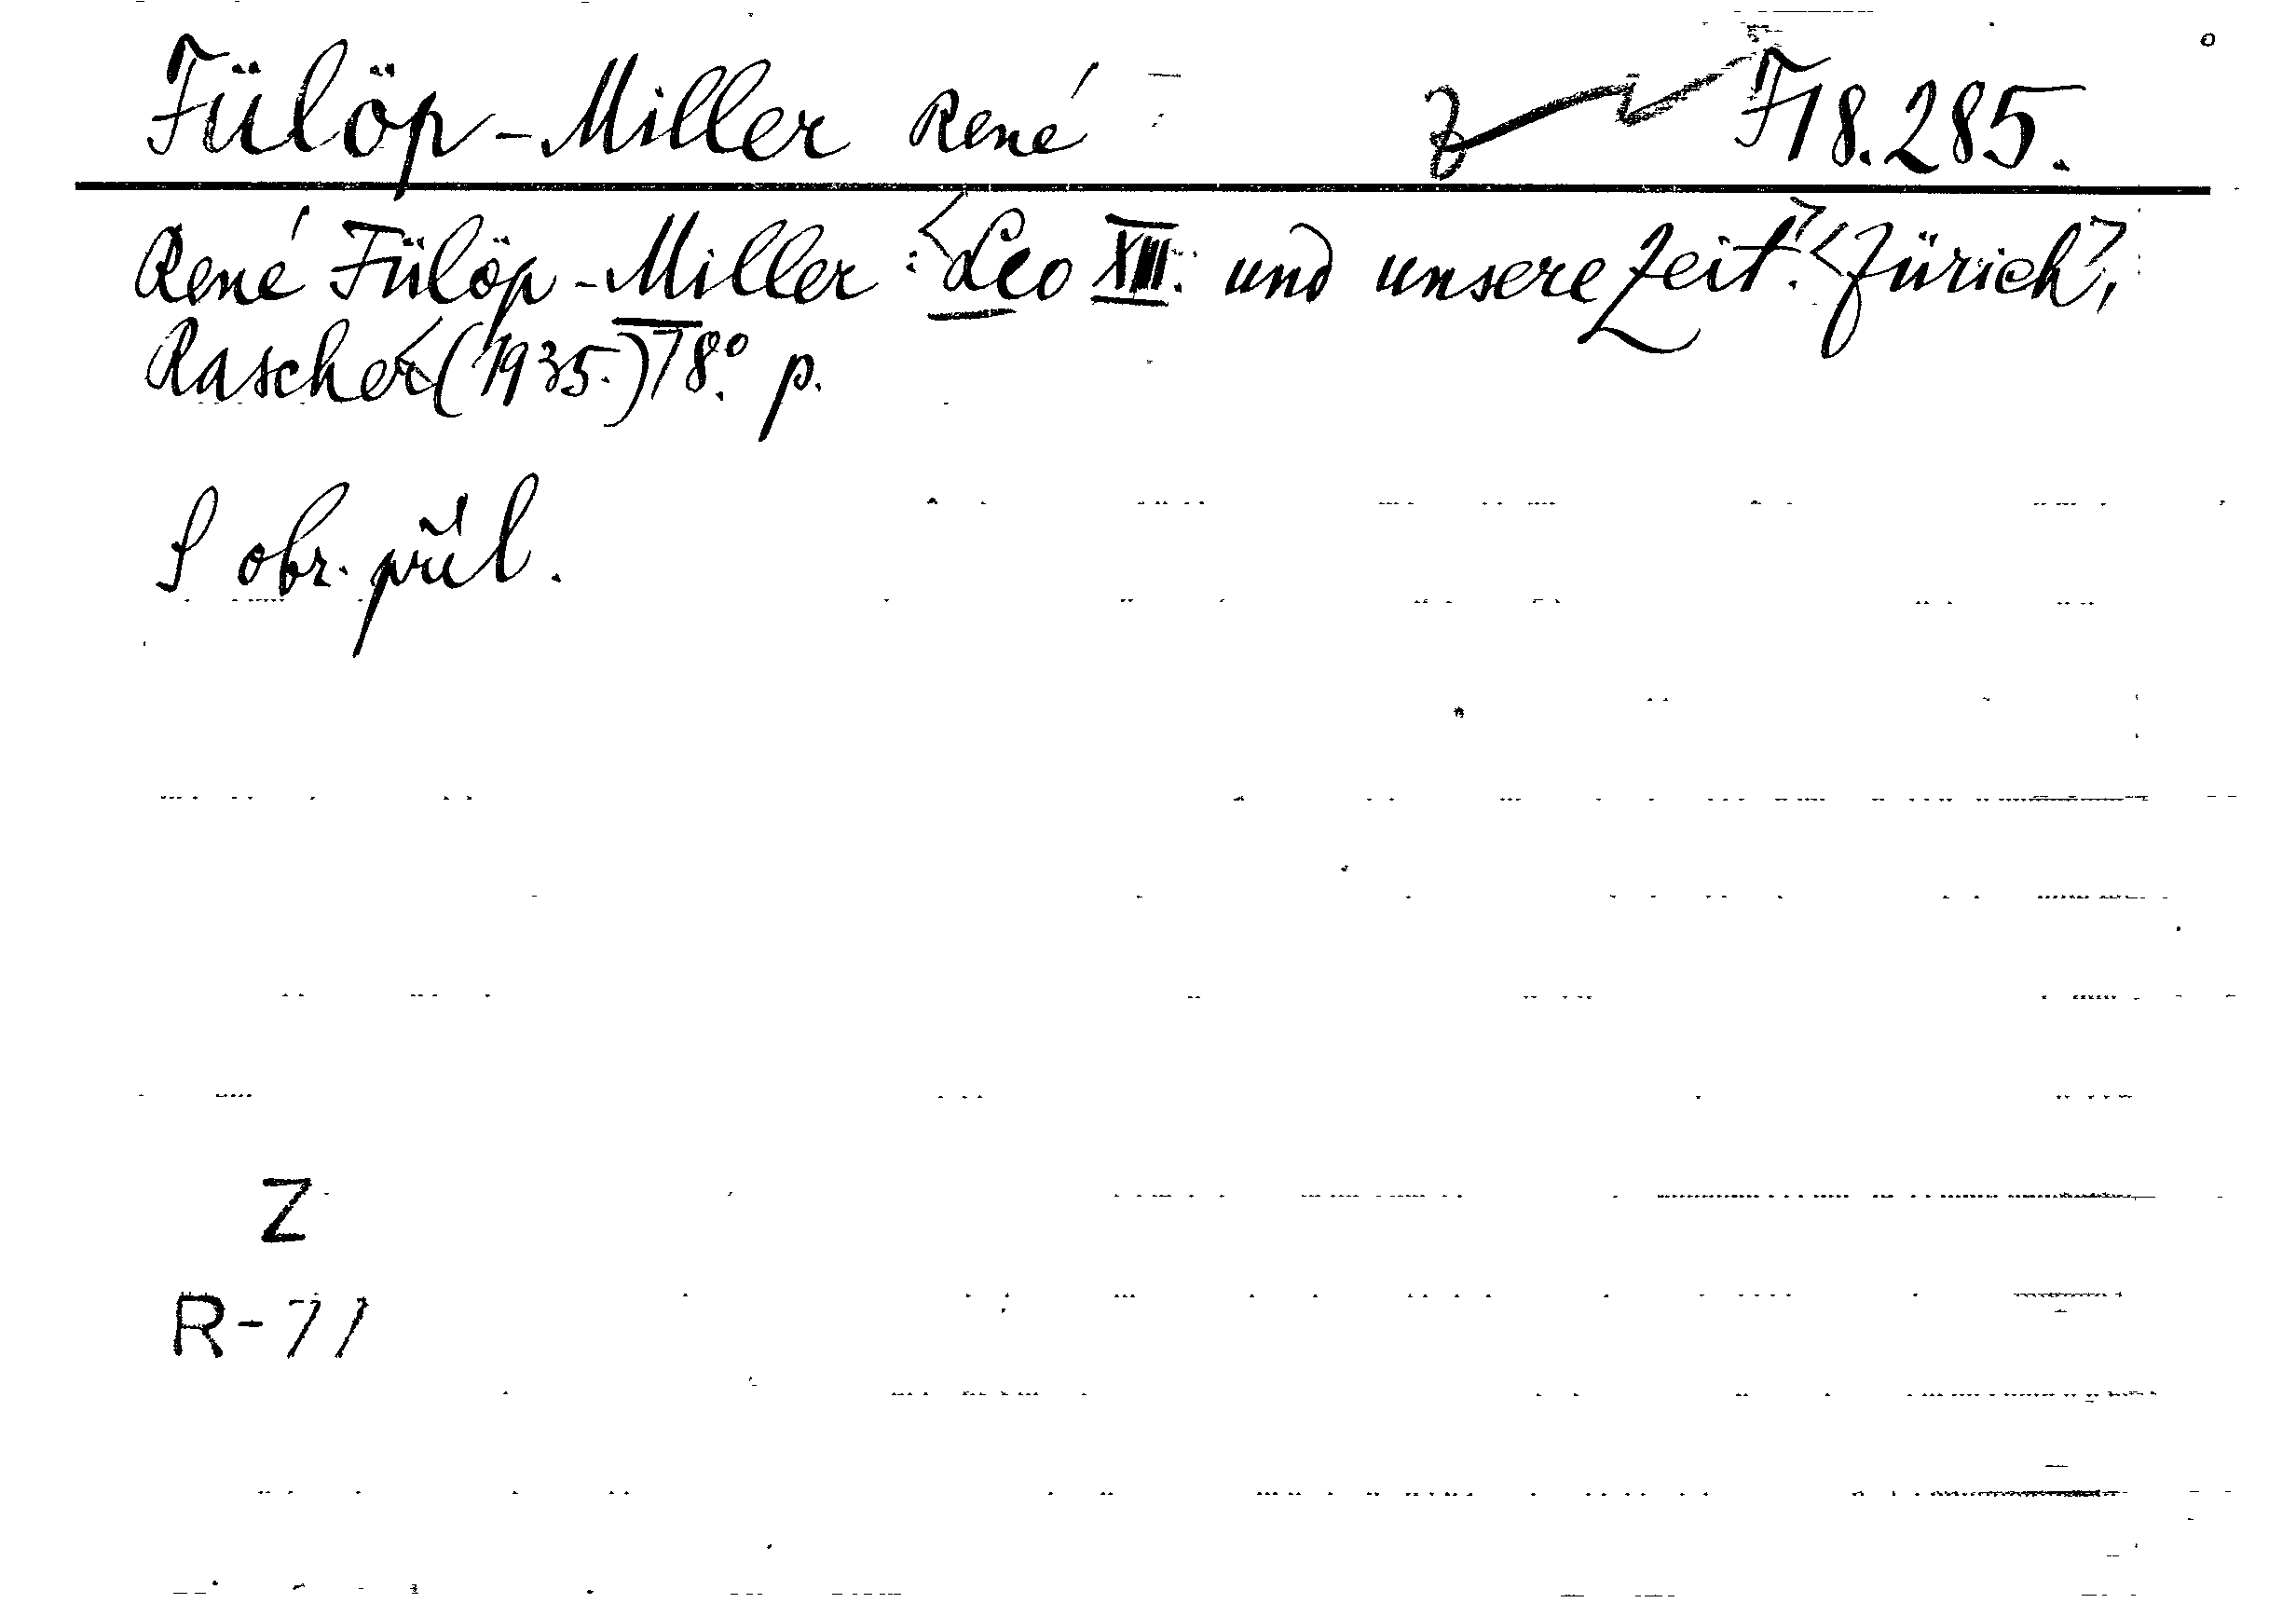 Fülöp-Miller René F 18.285.
René Fülöp-Miller: <Leo XIII. und unsere Zeit.> <Zürich>,
Rascher <(1935.)> 8.° p.
S obr. příl.
Z
R-71